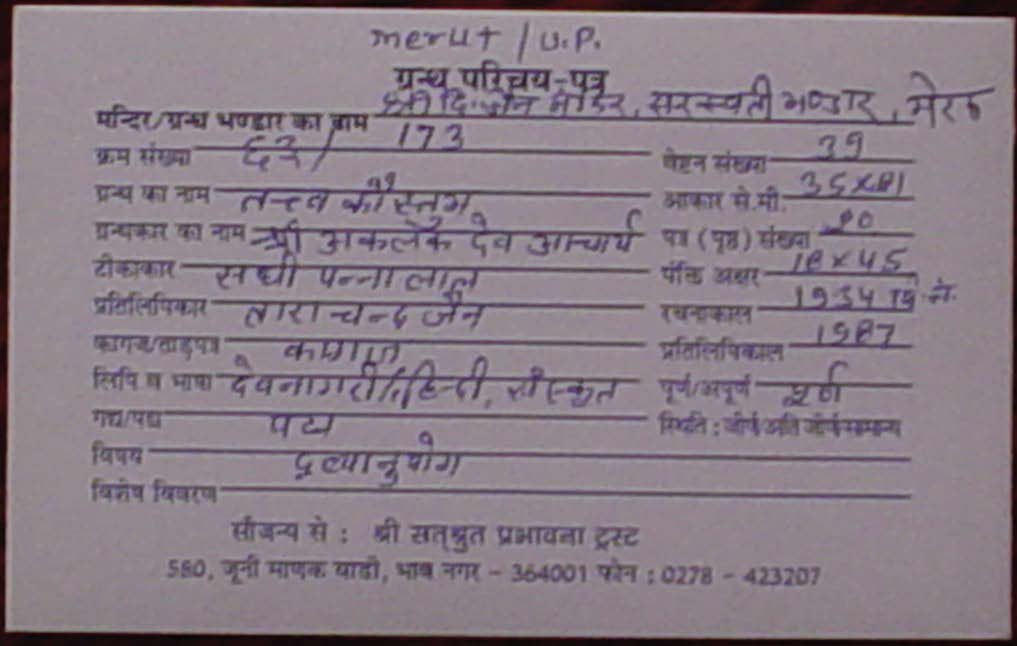 merut / U.P.
ग्रन्थ परिचय-पत्र
मन्दिर/ग्रन्थ भण्डार का नाम श्री दि. जैन मंदिर, सरस्वती भण्डार, मेरठ
क्रम संख्या / 173 वेष्टन संख्या 39
ग्रन्थ का नाम तत्त्व कौस्तुभ आकार से.मी.
ग्रन्थकार का नाम श्री अकलंक देव आचार्य पत्र (पृष्ठ) संख्या
टीकाकार संघी पन्नालाल पंक्ति अक्षर 18 x 45
प्रतिलिपिकार ताराचन्द जैन रचनाकाल 1934
कागज/ताड़पत्र कागज प्रतिलिपिकाल 1987
लिपि व भाषा देवनागरी/हिन्दी, संस्कृत पूर्ण/अपूर्ण पूर्ण
गद्य/पद्य पद्य स्थिति : जीर्ण/अति जीर्ण/सामान्य
विषय द्रव्यानुयोग
विशेष विवरण
सौजन्य से : श्री सत्श्रुत प्रभावना ट्रस्ट
580, जूनी माणक वाडी, भाव नगर - 364001 फोन : 0278 - 423207